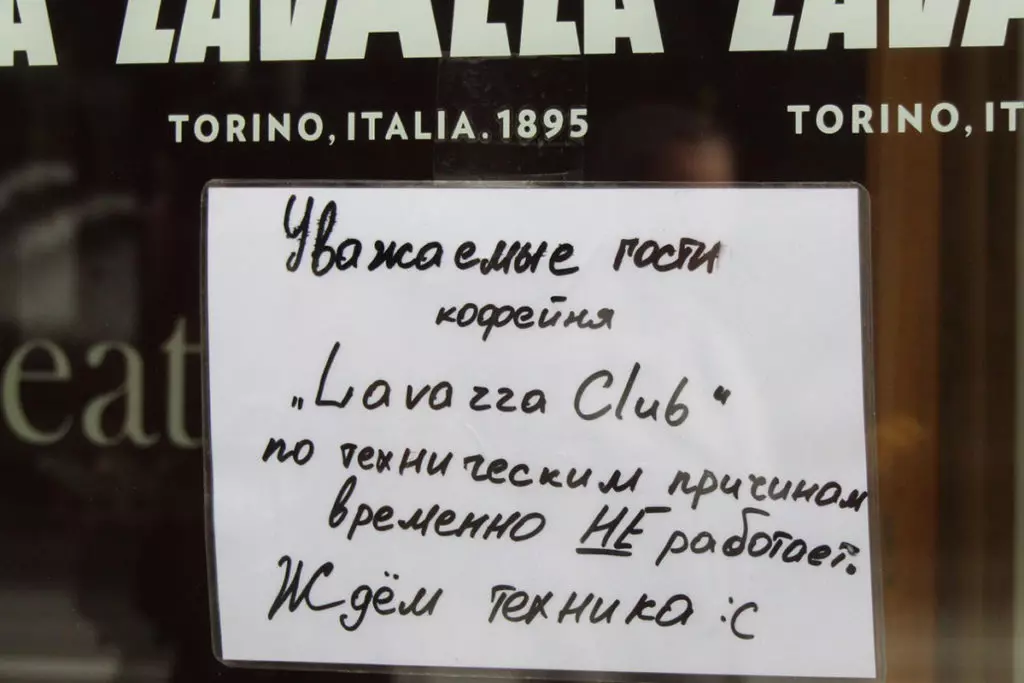 LAVAZZA LAVA
TORINO, ITALIA. 1895 TORINO, IT
eat
Уважаемые гости
кофейня
„Lavazza Club“
по техническим причинам
временно НЕ работает.
Ждём техника :С